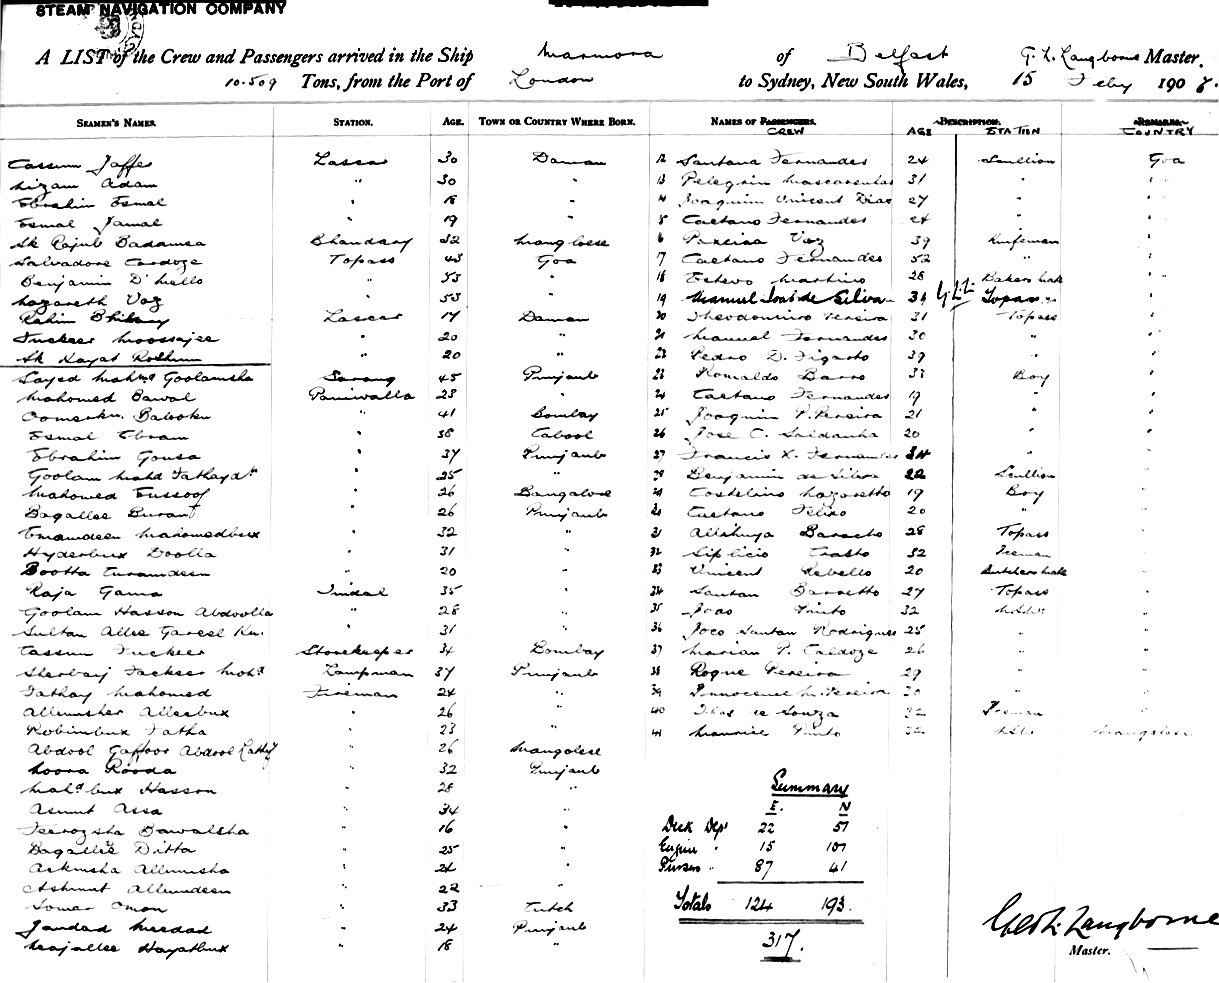 STEAM NAVIGATION COMPANY
A LIST of the Crew and Passengers arrived in the Ship Marmora of Belfast G. L. Langborne Master.
10.509 Tons, from the Port of London to Sydney, New South Wales, 15 Feby 1908.
SEAMEN'S NAMES. STATION. AGE. TOWN OR COUNTRY WHERE BORN. NAMES OF PASSENGERS. DESCRIPTION. REMARKS.
CREW AGE STATION COUNTRY
Cassum Jaffer Lascar 30 Daman 12 Santana Fernandes 24 Scullion Goa
Nizam Adam " 30 " 13 Pelegrin Mascarenhas 31 " "
Ebrahim Esmal " 18 " 14 Joaquim Vincent Dias 27 " "
Esmal Jamal " 19 " Caetano Fernandes 24 " "
Sk Rajub Badamea Bhandary 32 Mangloese Pereira Vaz 39 Knifeman "
Salvadore Cardoze Topass 43 Goa 17 Caetano Fernandes 52 " "
Benjamin D'Mello " 53 " 18 Estevo Martino 28 Bakers Mate "
Nazareth Vaz " 53 " 19 Manuel José de Silva 34 G.L.L. Topass "
Rahim Bhikay Lascar 17 Daman 20 Theodomiro Pereira 31 Topass "
Fuckeer Moosajee " 20 " 21 Manuel Fernandes 30 " "
Sk Hayat " 20 " Pedro D. 39 " "
Sayed Mahmd Goolamsha Sarang 45 Punjaub 23 Romaldo Barro 33 Boy "
Mahomed Bawal Paniwalla 23 " 24 Caetano Fernandes 19 " "
" 41 Bombay 25 Joaquim P. Pereira 21 " "
Esmal Ebram " 38 Cabool 26 Jose C. Saldanha 20 " "
Ebrahim Gousa " 37 Punjaub 27 Francis X. Fernandes 24 " "
Goolam Mahd " 25 " Benjamin de Silva 22 Scullion "
Mahomed Eussoof " 26 Bangalore 29 Costelino Nazaretto 19 Boy "
Bagallee " 26 Punjaub 30 Caetano Felixo 20 " "
Emamdeen Mahomedbux " 32 " 31 Baracho 28 Topass "
Hyderbux Doolla " 31 " 32 32 Iceman "
Bootta " 20 " 33 Vincent Rebello 20 Butchers Mate "
Raja Gama Tindal 35 " 34 Santan Barretto 27 Topass "
Goolam Hassan Abdoolla " 28 " 35 Joao Pinto 32 "
Sultan Allee " 31 " 36 Joao Santan Rodrigues 25 " "
Cassum Fuckeer Storekeeper 34 Bombay 37 Marian P. Caldoze 26 " "
Fackeer Mohd Lampman 37 Punjaub 38 Roque Pereira 29 " "
Fathay Mahomed Fireman 24 " 39 Innocence M. Pereira 30 " "
Allumsher Alleebux " 26 " 40 de Souza 32 Iceman "
Robimbux Fatha " 23 " 41 Maurice Pinto 32 Mangalore
Abdool Gaffoor Abdool " 26 Mangalese
Noora Rooda " 32 Punjaub
Mahd bux Hasson " 28 "
Asmut Assa " 34 "
Feerozsha Bawalsha " 16 "
Bagallee Ditta " 25 "
Allumsha " 24 "
Ashmut Allumdeen " 22 "
Somar Omar " 33 Cutch
Jandad Meerdad " 24 Punjaub
Hayatbux " 18 "
Summary
E. N
Deck Dept 22 51
Engine " 15 101
Pursers " 87 41
Totals 124 193.
317.
Geo L. Langborne
Master.